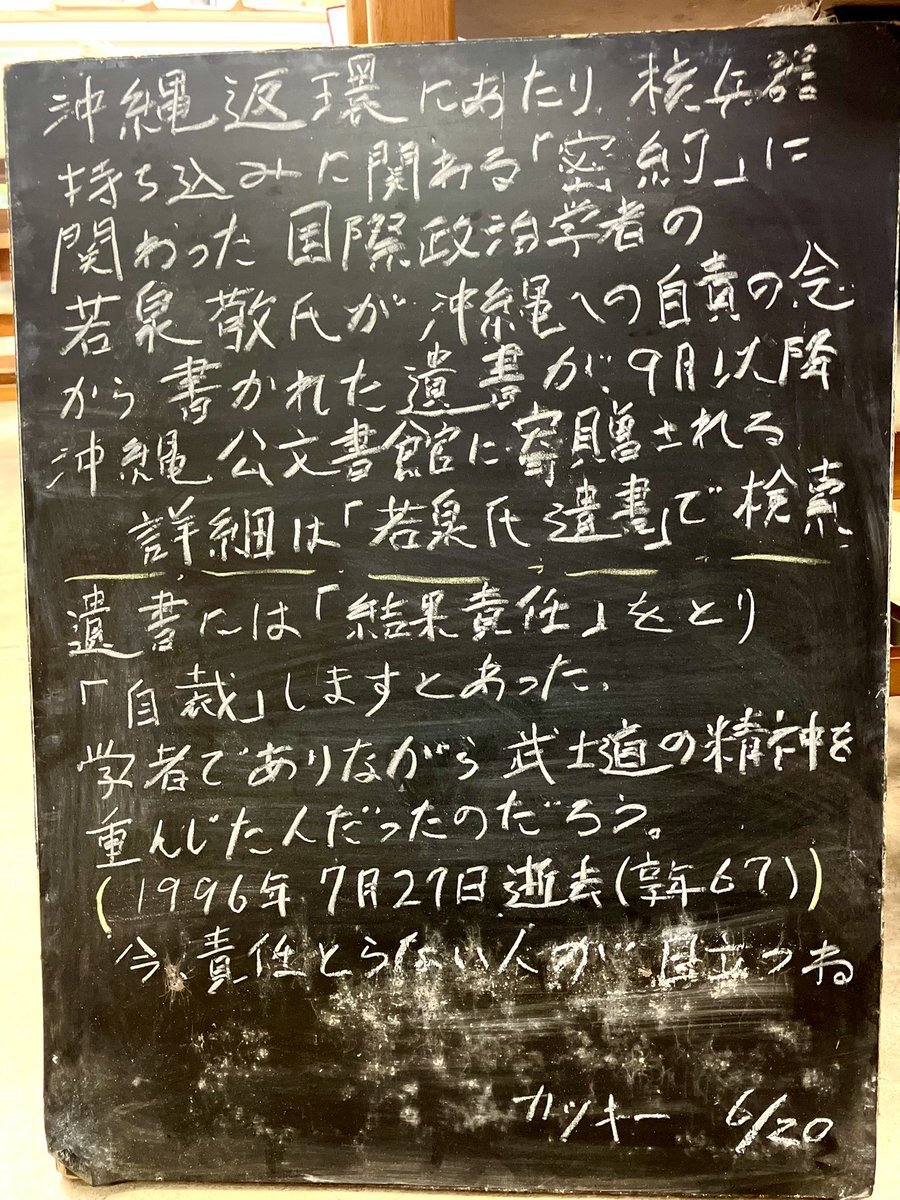 沖縄返環にあたり、核兵器
持ち込みに関わる「密約」に
関わった国際政治学者の
若泉敬氏が沖縄への自責の念
から書かれた遺書が、9月以降
沖縄公文書館に寄贈される
詳細は「若泉氏遺書」で検索
遺書には「結果責任」をとり
「自裁」しますとあった、
学者でありながら武士道の精神を
重んじた人だったのだろう。
(1996年7月27日逝去(享年67))
今、責任とらない人が目立つね。
カツキー 6/20